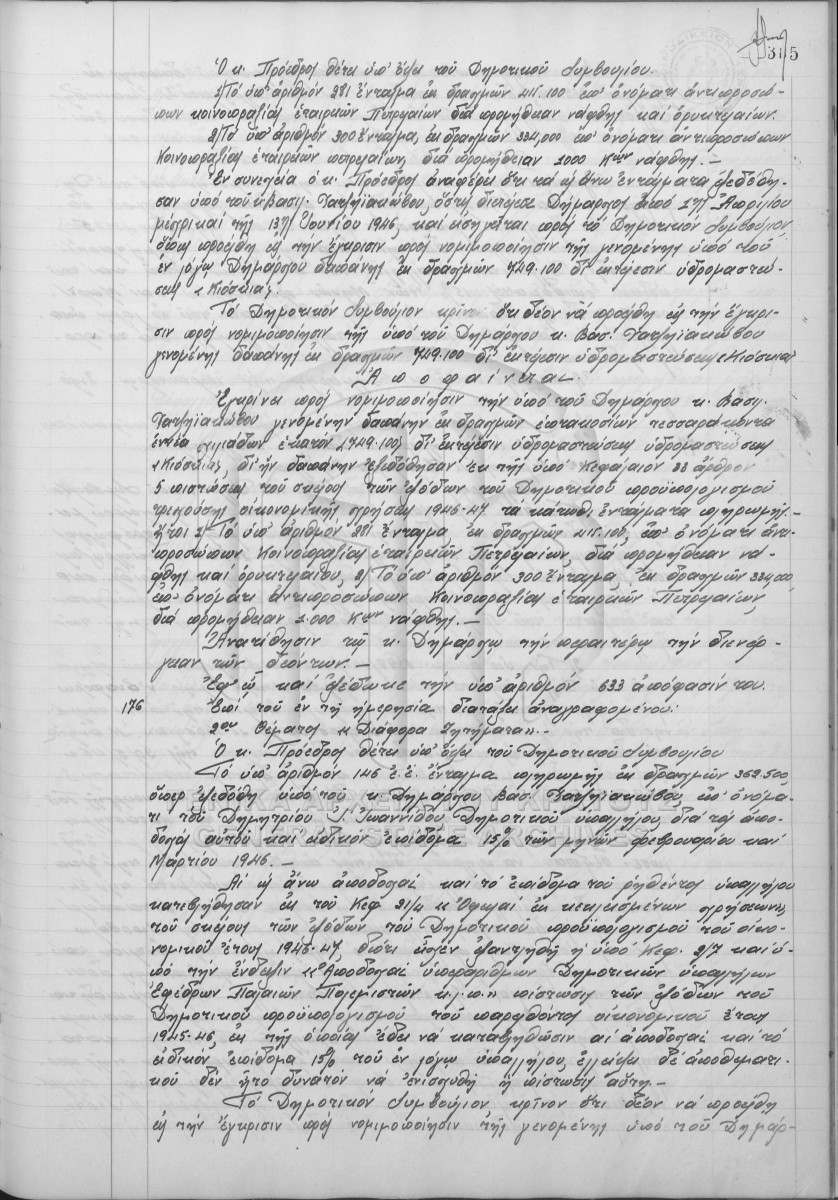 315
Ὁ κ. Πρόεδρος θέτει ὑπ' ὄψει τοῦ Δημοτικοῦ Συμβουλίου.
1) Τό ὑπ' ἀριθμόν 281 ἔνταλμα ἐκ δραχμῶν 415.100 ἐπ' ὀνόματι ἀντιπροσώ-
πων κοινοπραξίας ἑταιρειῶν Πετρελαίων διά προμήθειαν νάφθης καί ὀρυκτελαίων.
2) Τό ὑπ' ἀριθμόν 300 ἔνταλμα, ἐκ δραχμῶν 334,000 ἐπ' ὀνόματι ἀντιπροσώπων
Κοινοπραξίας ἑταιρειῶν πετρελαίων, διά προμήθειαν 2000 κιλῶν νάφθης. —
Ἐν συνεχείᾳ ὁ κ. Πρόεδρος ἀναφέρει ὅτι τά ὡς ἄνω ἐντάλματα ἐξεδόθη-
σαν ὑπό τοῦ κ. Βασιλ. Χατζηϊακώβου, ὅστις διετέλεσε Δήμαρχος ἀπό 2ας Ἀπριλίου
μέχρι καί τῆς 13ης Ἰουνίου 1946, καί εἰσηγεῖται πρός τό Δημοτικόν Συμβούλιον
ὅπως προέλθῃ εἰς τήν ἔγκρισιν πρός νομιμοποίησιν τῆς γενομένης ὑπό τοῦ
ἐν λόγῳ Δημάρχου δαπάνης ἐκ δραχμῶν 749.100 δι' ἐκτέλεσιν ὑδρομαστεύ-
σεως «Κιόσκια».
Τό Δημοτικόν Συμβούλιον κρίνον ὅτι δέον νά προέλθῃ εἰς τήν ἔγκρι-
σιν πρός νομιμοποίησιν τῆς ὑπό τοῦ Δημάρχου κ. Βασ. Χατζηϊακώβου
γενομένης δαπάνης ἐκ δραχμῶν 749.100 δι' ἐκτέλεσιν ὑδρομαστεύσεως «Κιόσκια»
Ἀποφαίνεται.
Ἐγκρίνει πρός νομιμοποίησιν τήν ὑπό τοῦ Δημάρχου κ. Βασιλ.
Χατζηϊακώβου γενομένην δαπάνην ἐκ δραχμῶν ἑπτακοσίων τεσσαράκοντα
ἐννέα χιλιάδων ἑκατόν (749.100) δι' ἐκτέλεσιν ὑδρομαστεύσεως ὑδρομαστεύσεως
«Κιόσκια», δι' ἥν δαπάνην ἐξεδόθησαν ἐκ τῆς ὑπό Κεφάλαιον 33 ἄρθρον
5 πιστώσεως τοῦ σκέλους τῶν ἐξόδων τοῦ Δημοτικοῦ προϋπολογισμοῦ
τρεχούσης οἰκονομικῆς χρήσεως 1946-47 τά κάτωθι ἐντάλματα πληρωμῆς. —
ἤτοι 1) Τό ὑπ' ἀριθμόν 281 ἔνταλμα ἐκ δραχμῶν 415.100, ἐπ' ὀνόματι ἀντι-
προσώπων Κοινοπραξίας ἑταιρειῶν Πετρελαίων, διά προμήθειαν νά-
φθης καί ὀρυκτελαίου, 2) Τό ὑπ' ἀριθμόν 300 ἔνταλμα, ἐκ δραχμῶν 334,000
ἐπ' ὀνόματι ἀντιπροσώπων Κοινοπραξίας ἑταιρειῶν Πετρελαίων,
διά προμήθειαν 2.000 κιλῶν νάφθης. —
Ἀνατίθησιν τῷ κ. Δημάρχῳ τήν περαιτέρω τήν διενέρ-
γειαν τῶν δεόντων. —
Ἐφ' ᾧ καί ἐξέδωκε τήν ὑπ' ἀριθμόν 633 ἀπόφασίν του.
176 Ἐπί τοῦ ἐν τῇ ἡμερησίᾳ διατάξει ἀναγραφομένου:
2ου Θέματος «Διάφορα Ζητήματα». —
Ὁ κ. Πρόεδρος θέτει ὑπ' ὄψει τοῦ Δημοτικοῦ Συμβουλίου
Τό ὑπ' ἀριθμόν 146 ἐ.ἔ. ἔνταλμα πληρωμῆς ἐκ δραχμῶν 362.500,
ὅπερ ἐξεδόθη ὑπό τοῦ κ. Δημάρχου Βασ. Χατζηϊακώβου, ἐπ' ὀνόμα-
τι τοῦ Δημητρίου Ἰ. Ἰωαννίδου Δημοτικοῦ ὑπαλλήλου, διά τάς ἀπο-
δοχάς αὐτοῦ καί εἰδικόν ἐπίδομα 15% τῶν μηνῶν Φεβρουαρίου καί
Μαρτίου 1946. —
Αἱ ὡς ἄνω ἀποδοχαί καί τό ἐπίδομα τοῦ ρηθέντος ὑπαλλήλου
κατεβλήθησαν ἐκ τοῦ Κεφ. 21/4 «Ὀφειλαί ἐκ κεκλεισμένων χρήσεων»,
τοῦ σκέλους τῶν ἐξόδων τοῦ Δημοτικοῦ προϋπολογισμοῦ τοῦ οἰκο-
νομικοῦ ἔτους 1946-47, διότι εἶχεν ἐξαντληθῆ ἡ ὑπό Κεφ. 2/7 καί ὑ-
πό τήν ἔνδειξιν «Ἀποδοχαί ὑπεραρίθμων Δημοτικῶν ὑπαλλήλων
Ἐφέδρων Παλαιῶν Πολεμιστῶν κ.λ.π.» πίστωσις τῶν ἐξόδων τοῦ
Δημοτικοῦ προϋπολογισμοῦ τοῦ παρελθόντος οἰκονομικοῦ ἔτους
1945-46, ἐκ τῆς ὁποίας ἔδει νά καταβληθῶσιν αἱ ἀποδοχαί καί τό
εἰδικόν ἐπίδομα 15% τοῦ ἐν λόγῳ ὑπαλλήλου, ἐλλείψει δέ ἀποθεματι-
κοῦ δέν ἦτο δυνατόν νά ἐνισχυθῇ ἡ πίστωσις αὕτη. —
Τό Δημοτικόν Συμβούλιον κρῖνον ὅτι δέον νά προέλθῃ
εἰς τήν ἔγκρισιν πρός νομιμοποίησιν τῆς γενομένης ὑπό τοῦ Δημάρ-